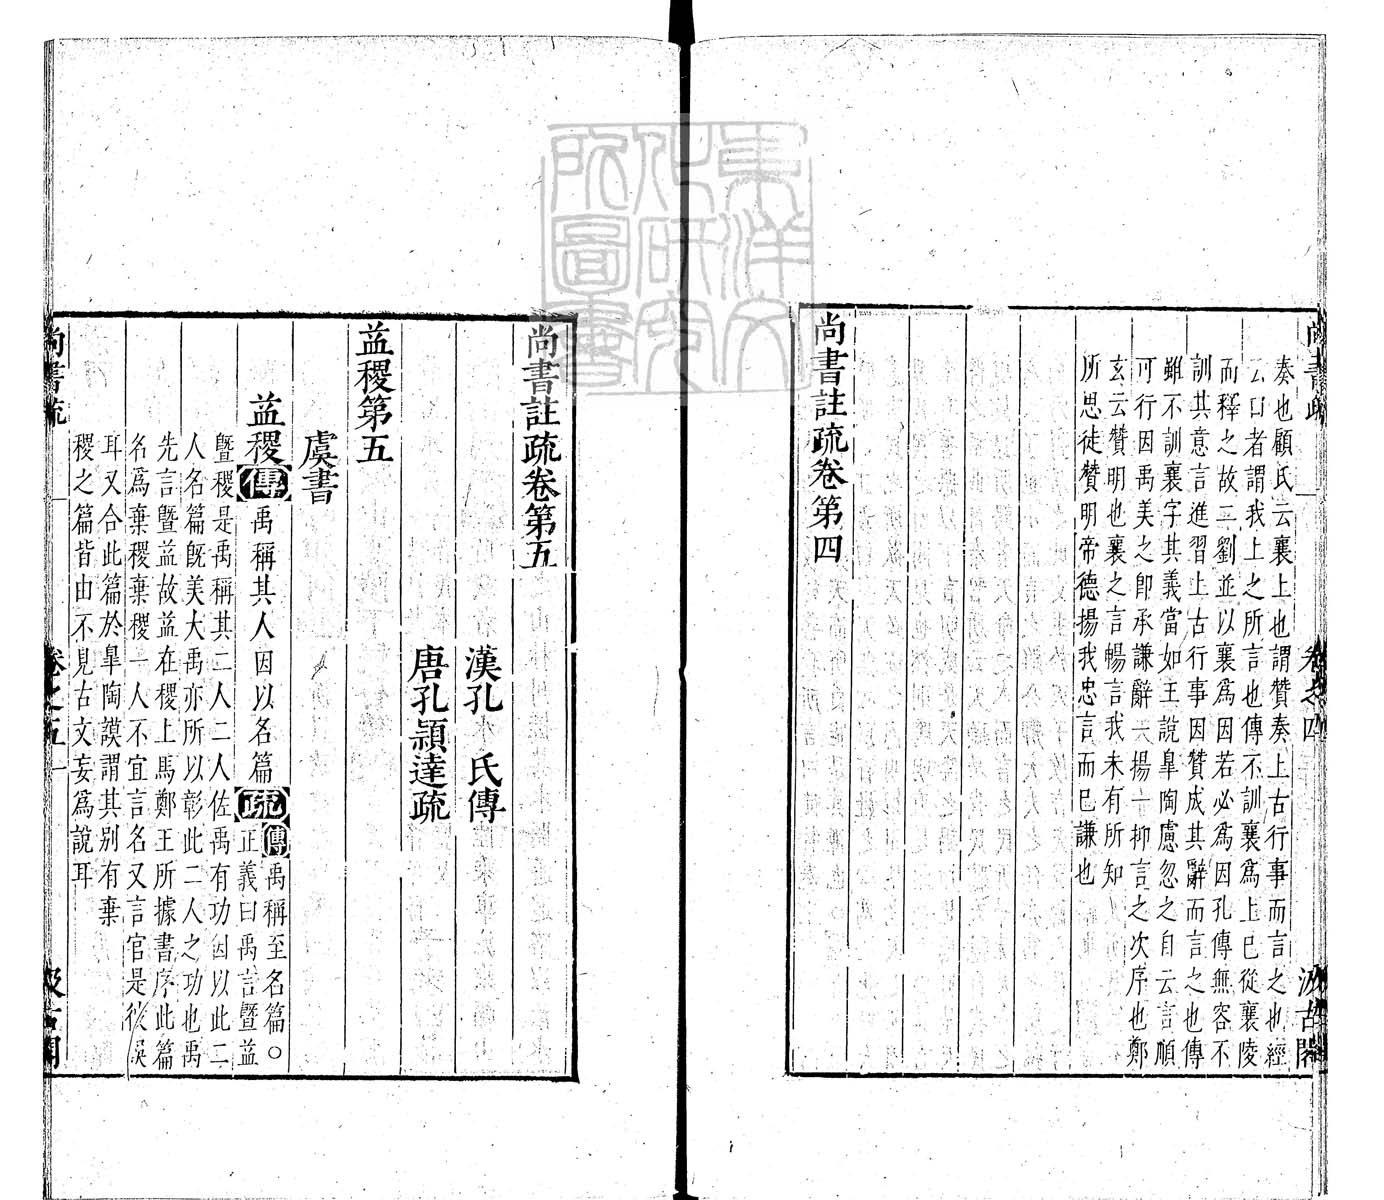 奏也顧氏云襄上也謂贊奏上古行事而言之也經
云曰者謂我上之所言也傳不訓襄爲上已從襄陵
而釋之故二劉並以襄爲因若必爲因孔傳無容不
訓其意言進習上古行事因贊成其辭而言之也傳
雖不訓襄字其義當如王說皐陶慮忽之自云言順
可行因禹美之卽承謙辭一揚一抑言之次序也鄭
玄云贊明也襄之言暢言我未有所知
所思徒贊明帝德揚我忠言而已謙也
尚書註疏卷第四
尚書註疏卷第五
漢孔氏傳
唐孔穎達疏
益稷第五
虞書
益稷傳禹稱其人因以名篇疏傳禹稱至名篇○
正義曰禹言曁益
曁稷是禹稱其二人二人佐禹有功因以此二
人名篇旣美大禹亦所以彰此二人之功也禹
先言曁益故益在稷上馬鄭王所據書序此篇
名爲棄稷棄稷一人不宜言名又言官是彼誤
耳又合此篇於皐陶謨謂其別有棄
稷之篇皆由不見古文妄爲說耳
尚書疏
卷之五
一
汲古閣
東洋文化研究所圖書